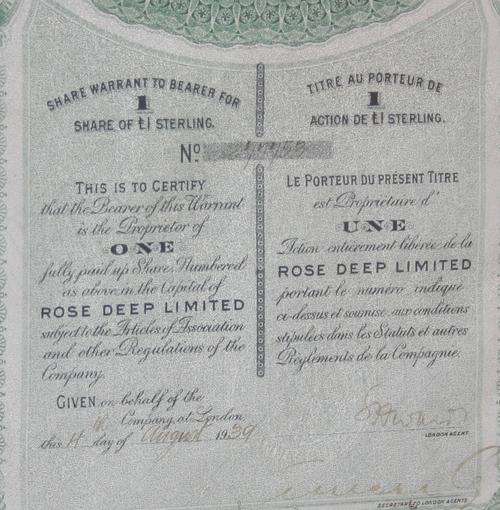 SHARE WARRANT TO BEARER FOR
1
SHARE OF £1 STERLING.
THIS IS TO CERTIFY
that the Bearer of this Warrant
is the Proprietor of
ONE
fully paid up Share Numbered
as above in the Capital of
ROSE DEEP LIMITED
subject to the Articles of Association
and other Regulations of the
Company.
GIVEN on behalf of the
Company, at London,
this 11th day of August 1939
TITRE AU PORTEUR DE
1
ACTION DE £1 STERLING.
No.
LE PORTEUR DU PRÉSENT TITRE
est Propriétaire d'
UNE
Action entièrement libérée de la
ROSE DEEP LIMITED
portant le numéro indiqué
ci-dessus et soumise aux conditions
stipulées dans les Statuts et autres
Règlements de la Compagnie.
LONDON AGENTS
SECRETARY TO LONDON AGENTS